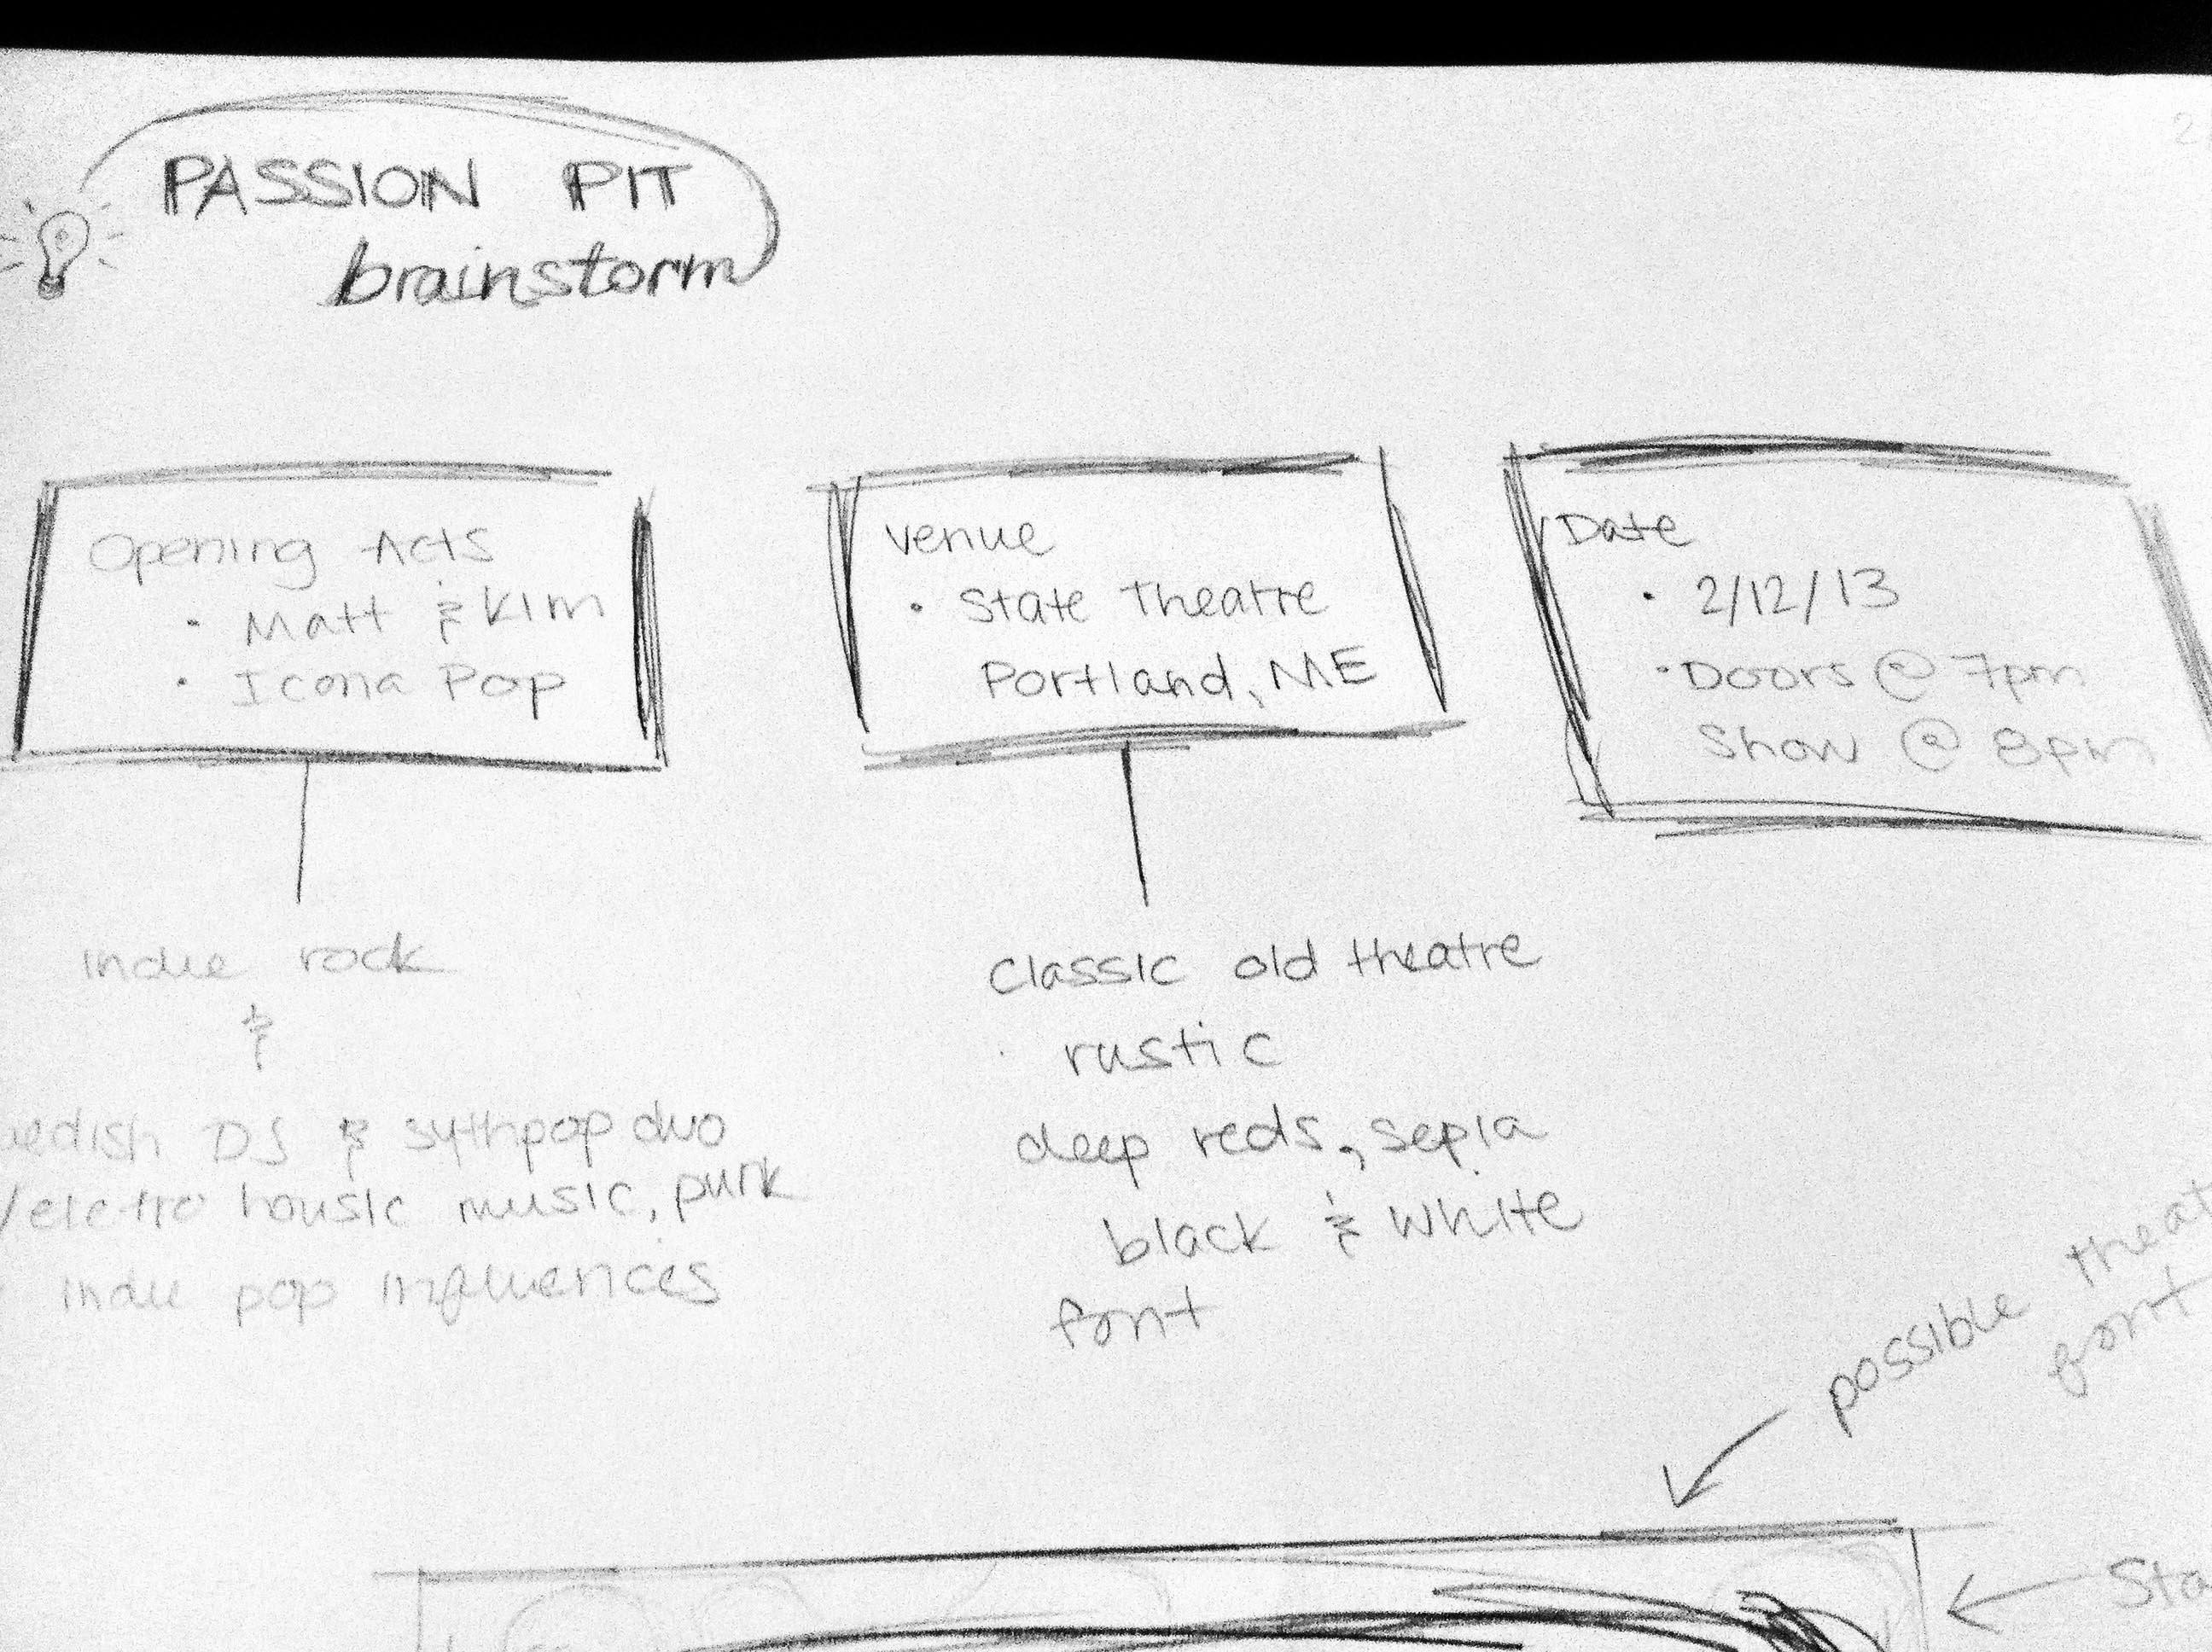 PASSION PIT
brainstorm
Opening Acts
• Matt & Kim
• Icona Pop
Venue
• State Theatre
Portland, ME
Date
• 2/12/13
• Doors @ 7pm
Show @ 8pm
indie rock
&
DJ & sythpop duo
/elctro housic music, punk
indie pop influences
Classic old theatre
rustic
deep reds, sepia
black & white
font
possible
font
2